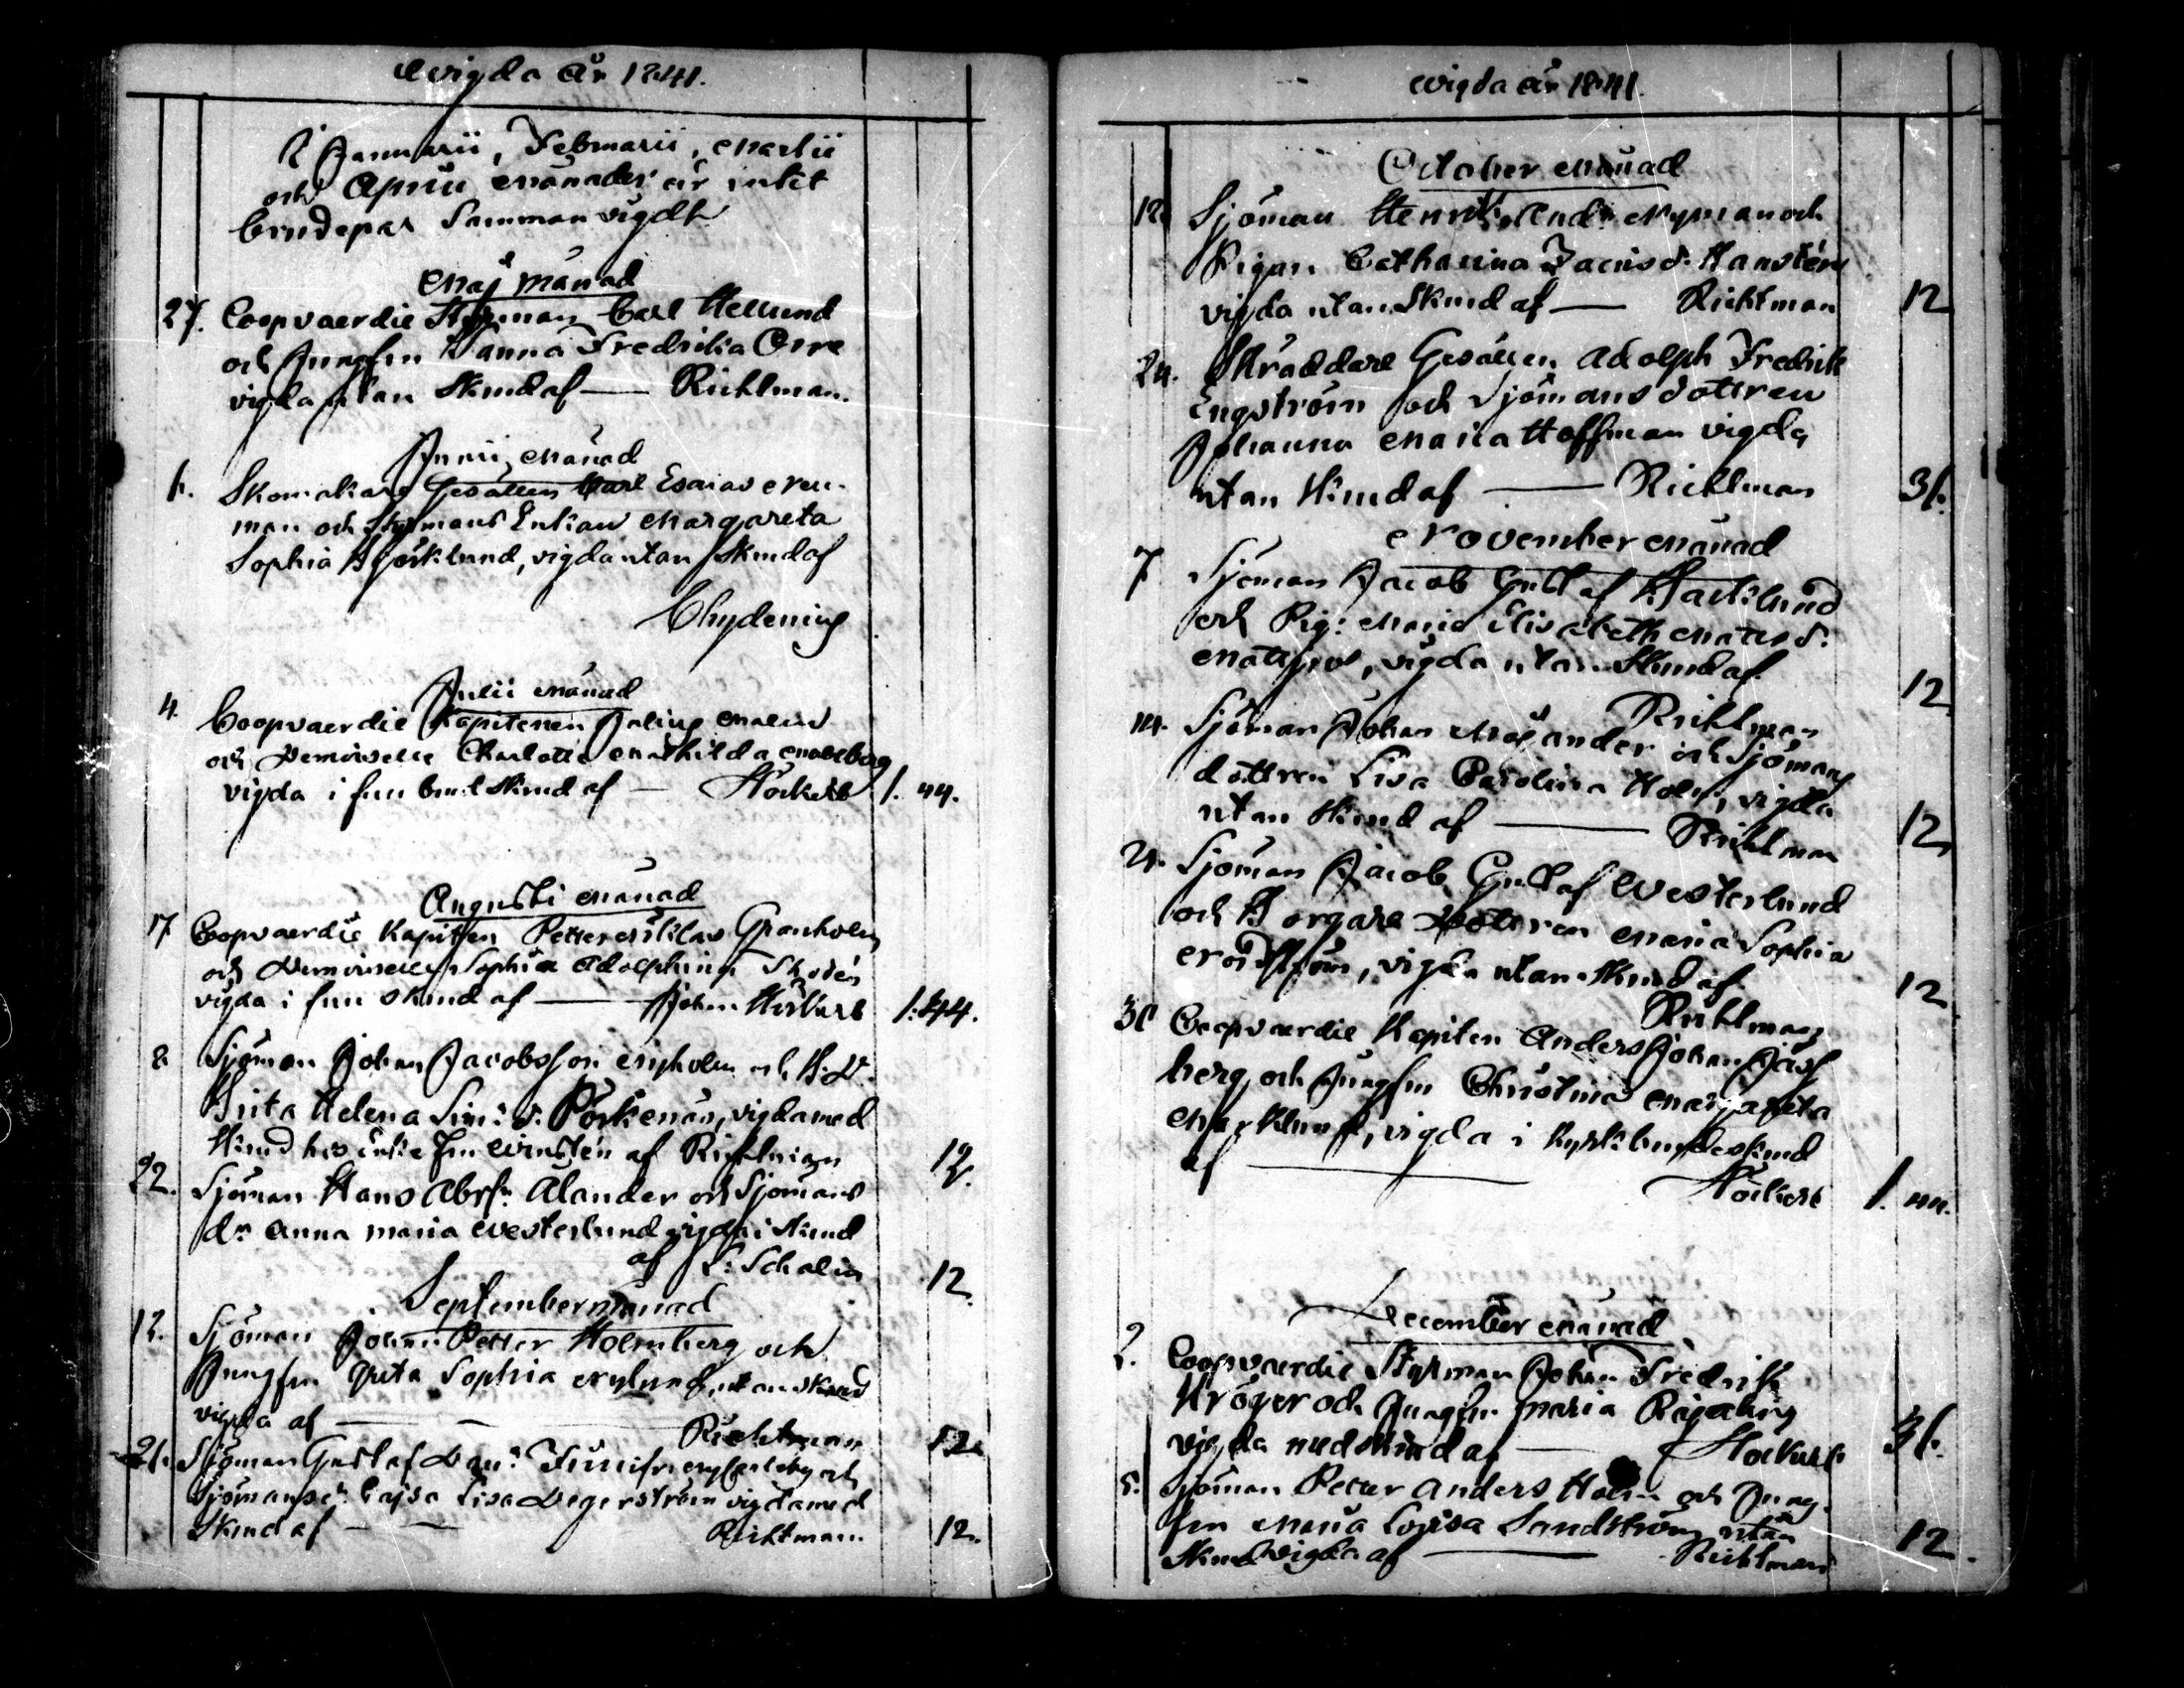 Wigda År 1841.
I Januarii, Februarii, Martii
och Aprill Månader är intet
brudepar Sammanvigdt
Maj Månad
27. Coopvaerdie Styrman Carl Hellund
och Jungfru Hanna Fredrika Orre
vigda utan Skrud af — Richtman.
Junii Månad
1. Skomakare Gesällen Carl Esaias Neu-
man och Styrmans Enkan Margareta
Sophia Björklund, vigda utan Skrud af
Chydenius
Julii Månad
4. Coopvaerdie Kapitenen Julius Malin
och Demoiselle Charlotta Mathilda Malmberg
vigda i full brud Skrud af — Höckert 1. 44.
Augusti Månad
17 Coopvaerdie Kapiten Petter Niklas Granholm
och Demoiselle Sophia Adolphina Skotén
vigda i full skrud af — Johan Höckert 1. 44.
8 Sjöman Johan Jacobsson Nyholm och B. D.
Brita Helena Sim: d: Pörkenäs, vigda med
Skrud hos Enke fru Winstén af Richtman 12.
22. Sjöman Hans Abrsn Ålander och Sjömans
dr Anna Maria Westerlund vigda i Skrud
af L: Schalin 12.
September Månad
12. Sjöman Johan Petter Holmberg och
Jungfru Greta Sophia Nylund, utan skrud
vigda af — Richtman 12.
21. Sjöman Gustaf Dan:
Sjömansdr. Cajsa Lisa Degerström vigda med
Skrud af — Richtman 12.
Wigda År 1841.
October Månad
12 Sjöman Henrik And: Nyman och
Pigan Catharina Jacusd: Hanstén
vigda utan Skrud af — Richtman 12
24. Skräddare Gesällen Adolph Fredrik
Engström och Sjömansdottren
Johanna Maria Hoffman vigda
utan Skrud af — Richtman 36.
November Månad
7 Sjöman Jacob Gustaf Backlund
och Pig: Maria Elisabeth Mattsd:
vigda utan Skrud af 12
Richtman
14. Sjöman Johan Molander och Sjömans
dottren Lisa Carolina Holm, vigda
utan Skrud af — Richtman 12
21. Sjöman Jacob Gustaf Westerlund
och Borgare Dottren Maria Sophia
Nordström, vigda utan Skrud af 12
Richtman
30 Coopvaerdie Kapiten Anders Johan
berg och Jungfru Christina Margareta
Marklund, vigda i Kyrk: brudeskrud
af — Höckert 1. 44.
December Månad
2. Coopvaerdie Styrman Johan Fredrik
Kröger och Jungfru Maria Rajaling
vigda med skrud af — Höckert 36.
5. Sjöman Petter Anders Holm och Jung-
fru Maria Lovisa Sandström utan
Skrud vigda af — Richtman 12.